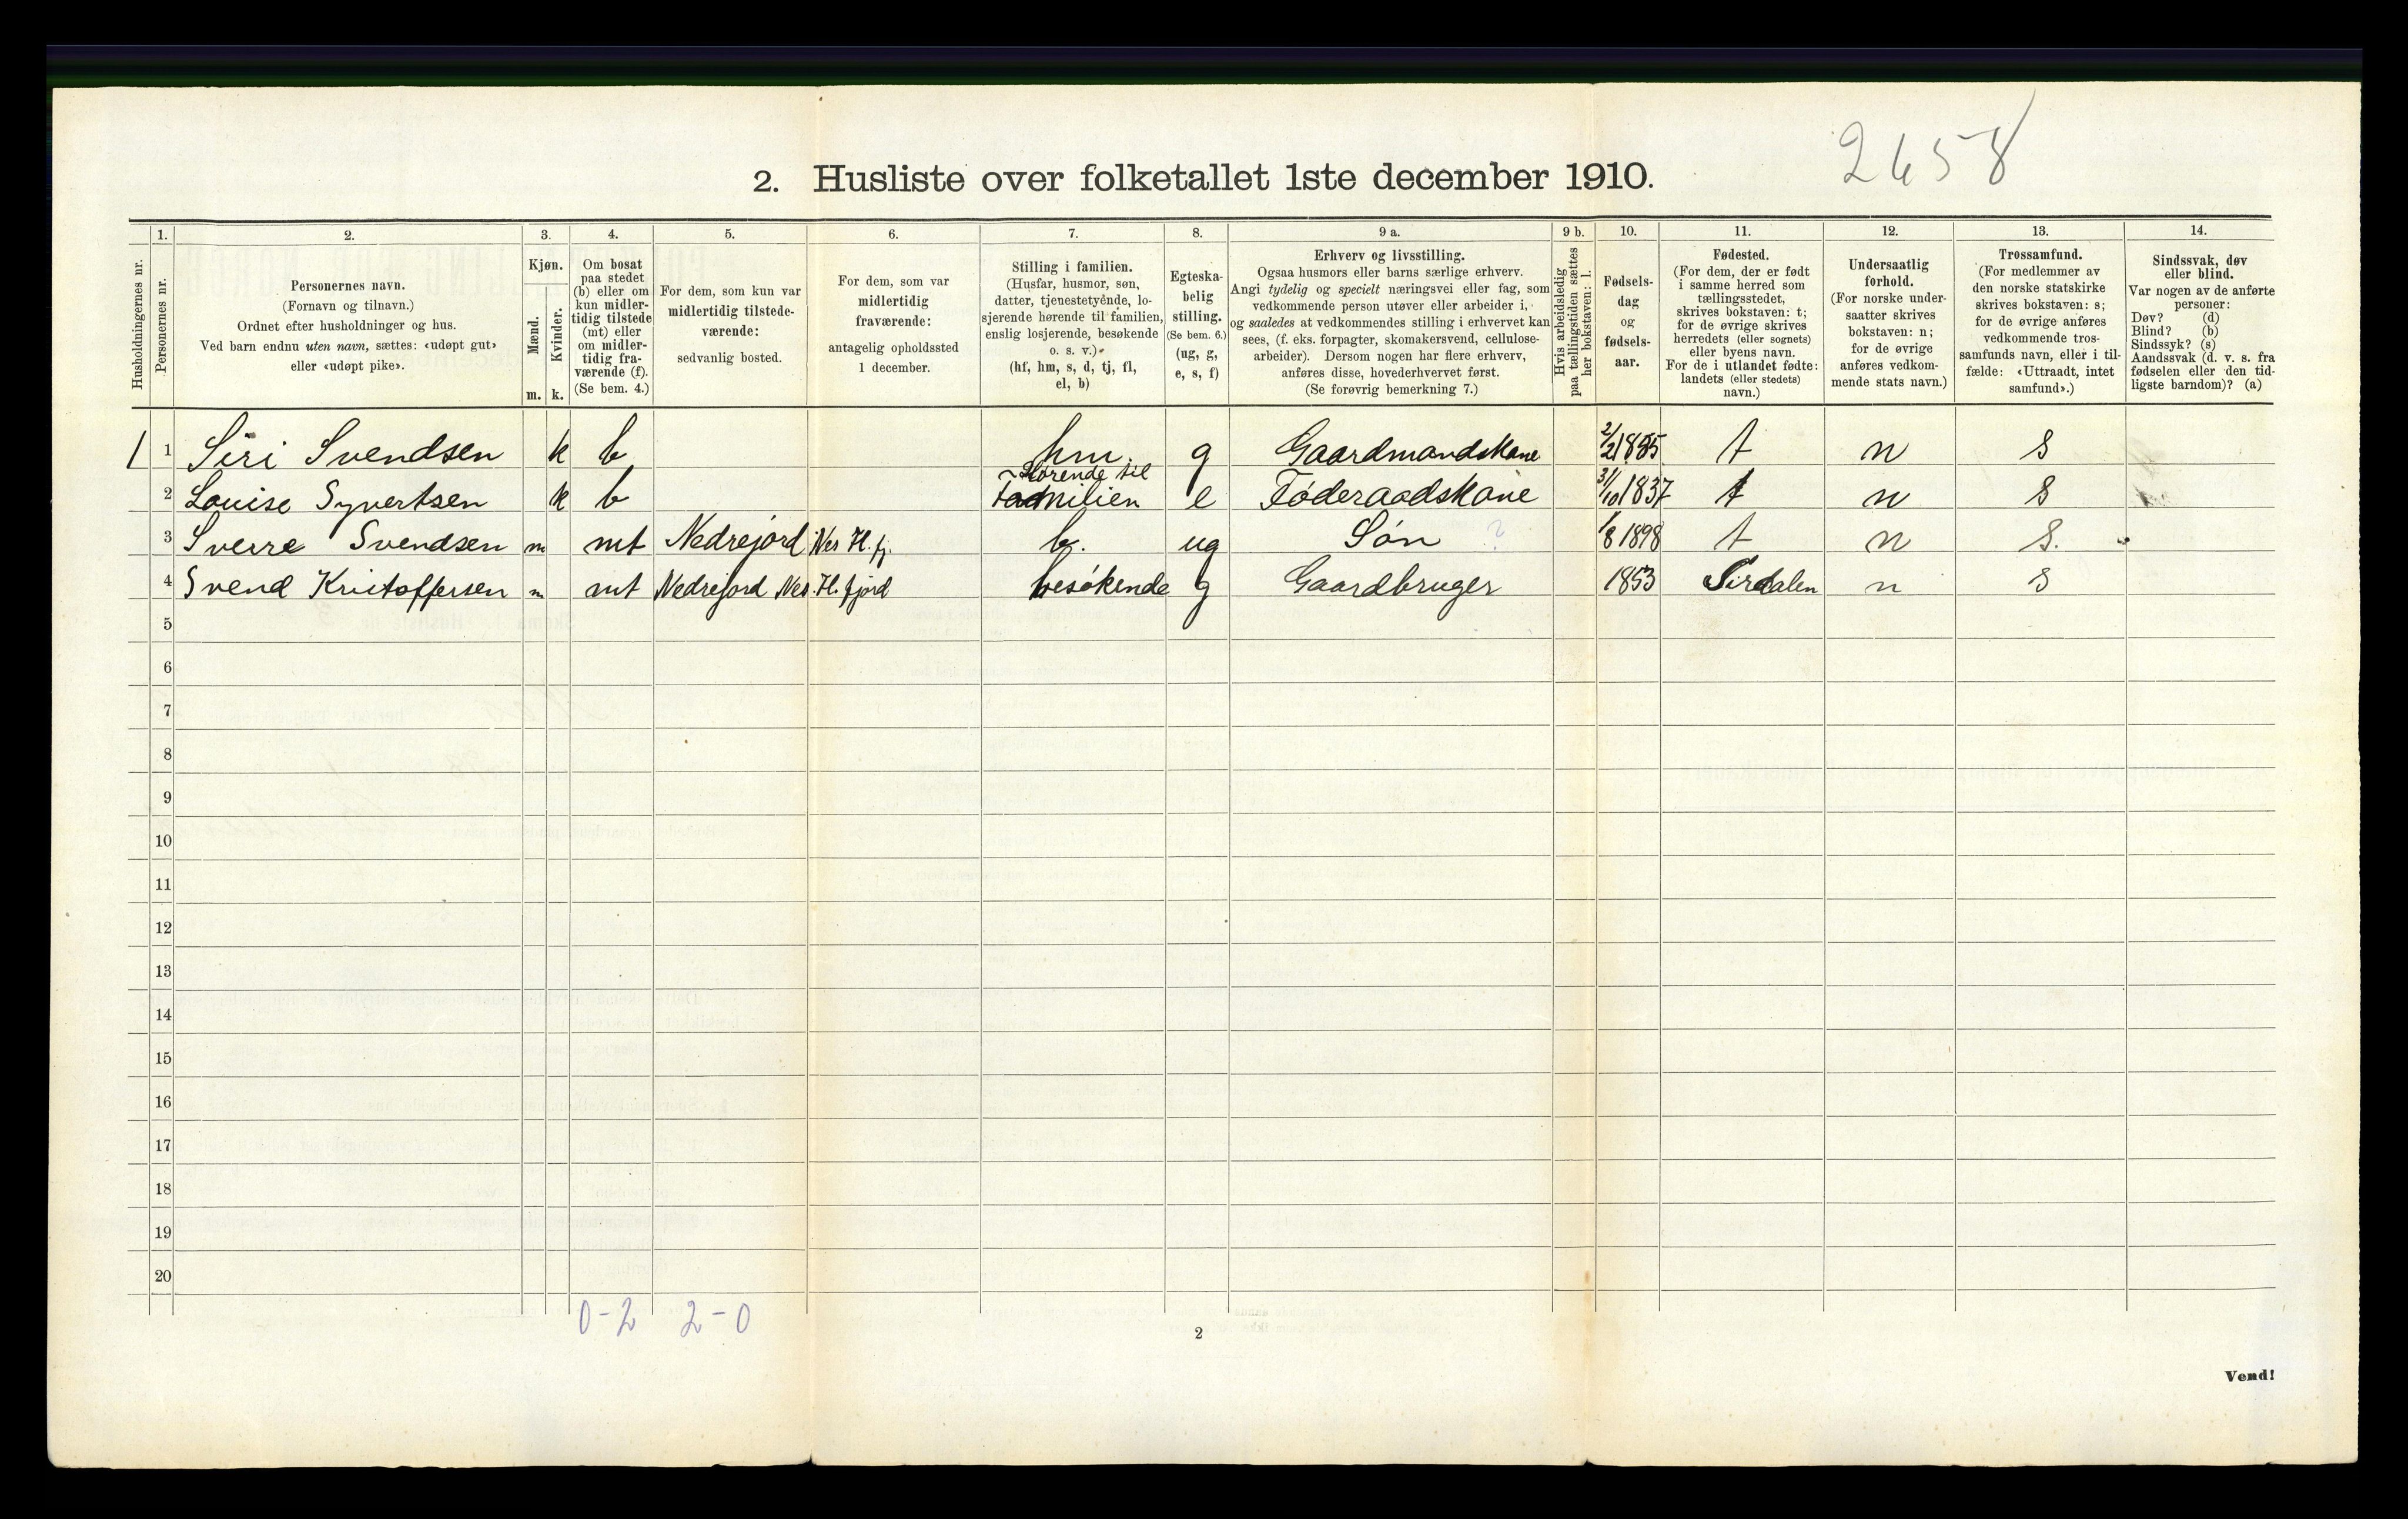 2658
2. Husliste over folketallet 1ste december 1910.
1. 2. 3. 4. 5. 6. 7. 8. 9 a. 9 b. 10. 11. 12. 13. 14.
Husholdningernes nr.
Personernes nr.
Personernes navn.
(Fornavn og tilnavn.)
Ordnet efter husholdninger og hus.
Ved barn endnu uten navn, sættes: «udøpt gut»
eller «udøpt pike».
Kjøn.
Mænd.
Kvinder.
m. k.
Om bosat
paa stedet
(b) eller om
kun midler-
tidig tilstede
(mt) eller
om midler-
tidig fra-
værende (f).
(Se bem. 4.)
For dem, som kun var
midlertidig tilstede-
værende:
sedvanlig bosted.
For dem, som var
midlertidig
fraværende:
antagelig opholdssted
1 december.
Stilling i familien.
(Husfar, husmor, søn,
datter, tjenestetyende, lo-
sjerende hørende til familien,
enslig losjerende, besøkende
o. s. v.)
(hf, hm, s, d, tj, fl,
el, b)
Egteska-
belig
stilling.
(Se bem. 6.)
(ug, g,
e, s, f)
Erhverv og livsstilling.
Ogsaa husmors eller barns særlige erhverv.
Angi tydelig og specielt næringsvei eller fag, som
vedkommende person utøver eller arbeider i,
og saaledes at vedkommendes stilling i erhvervet kan
sees, (f. eks. forpagter, skomakersvend, cellulose-
arbeider). Dersom nogen har flere erhverv,
anføres disse, hovederhvervet først.
(Se forøvrig bemerkning 7.)
Hvis arbeidsledig
paa tællingstiden sættes
her bokstaven: l.
Fødsels-
dag
og
fødsels-
aar.
Fødested.
(For dem, der er født
i samme herred som
tællingsstedet,
skrives bokstaven: t;
for de øvrige skrives
herredets (eller sognets)
eller byens navn.
For de i utlandet fødte:
landets (eller stedets)
navn.)
Undersaatlig
forhold.
(For norske under-
saatter skrives
bokstaven: n;
for de øvrige
anføres vedkom-
mende stats navn.)
Trossamfund.
(For medlemmer av
den norske statskirke
skrives bokstaven: s;
for de øvrige anføres
vedkommende tros-
samfunds navn, eller i til-
fælde: «Uttraadt, intet
samfund».)
Sindssvak, døv
eller blind.
Var nogen av de anførte
personer:
Døv? (d)
Blind? (b)
Sindssyk? (s)
Aandssvak (d. v. s. fra
fødselen eller den tid-
ligste barndom)? (a)
1 1 Siri Svendsen k b hm. g Gaardmandskone 2/2 1885 t n s
2 Louise Syvertsen k b Hørende til familien e Føderaadskone 31/10 1837 t n s
3 Sverre Svendsen m mt Nedrejord Nes H. fj. b. ug Søn ? 1/8 1898 t n s.
4 Svend Kristoffersen m mt Nedrefjord Nes. H. fjord besøkende g Gaardbruger 1853 Sirdalen n s
5
6
7
8
9
10
11
12
13
14
15
16
17
18
19
20
0-2 2-0
2
Vend!